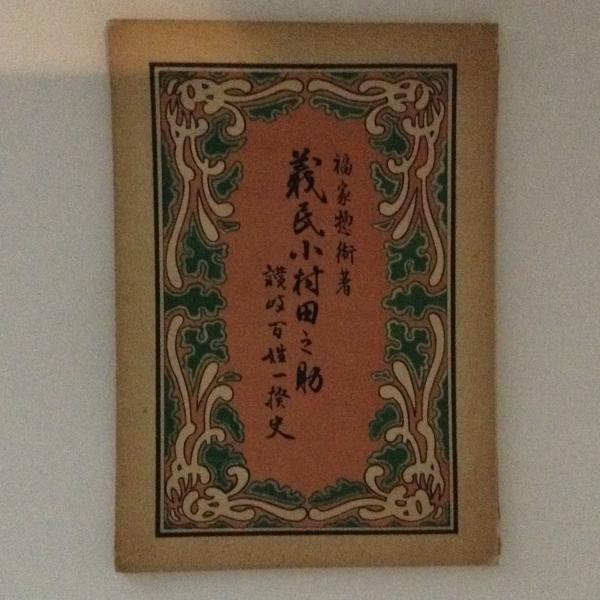 福家惣衛著
義民小村田之助
讃岐百姓一揆史